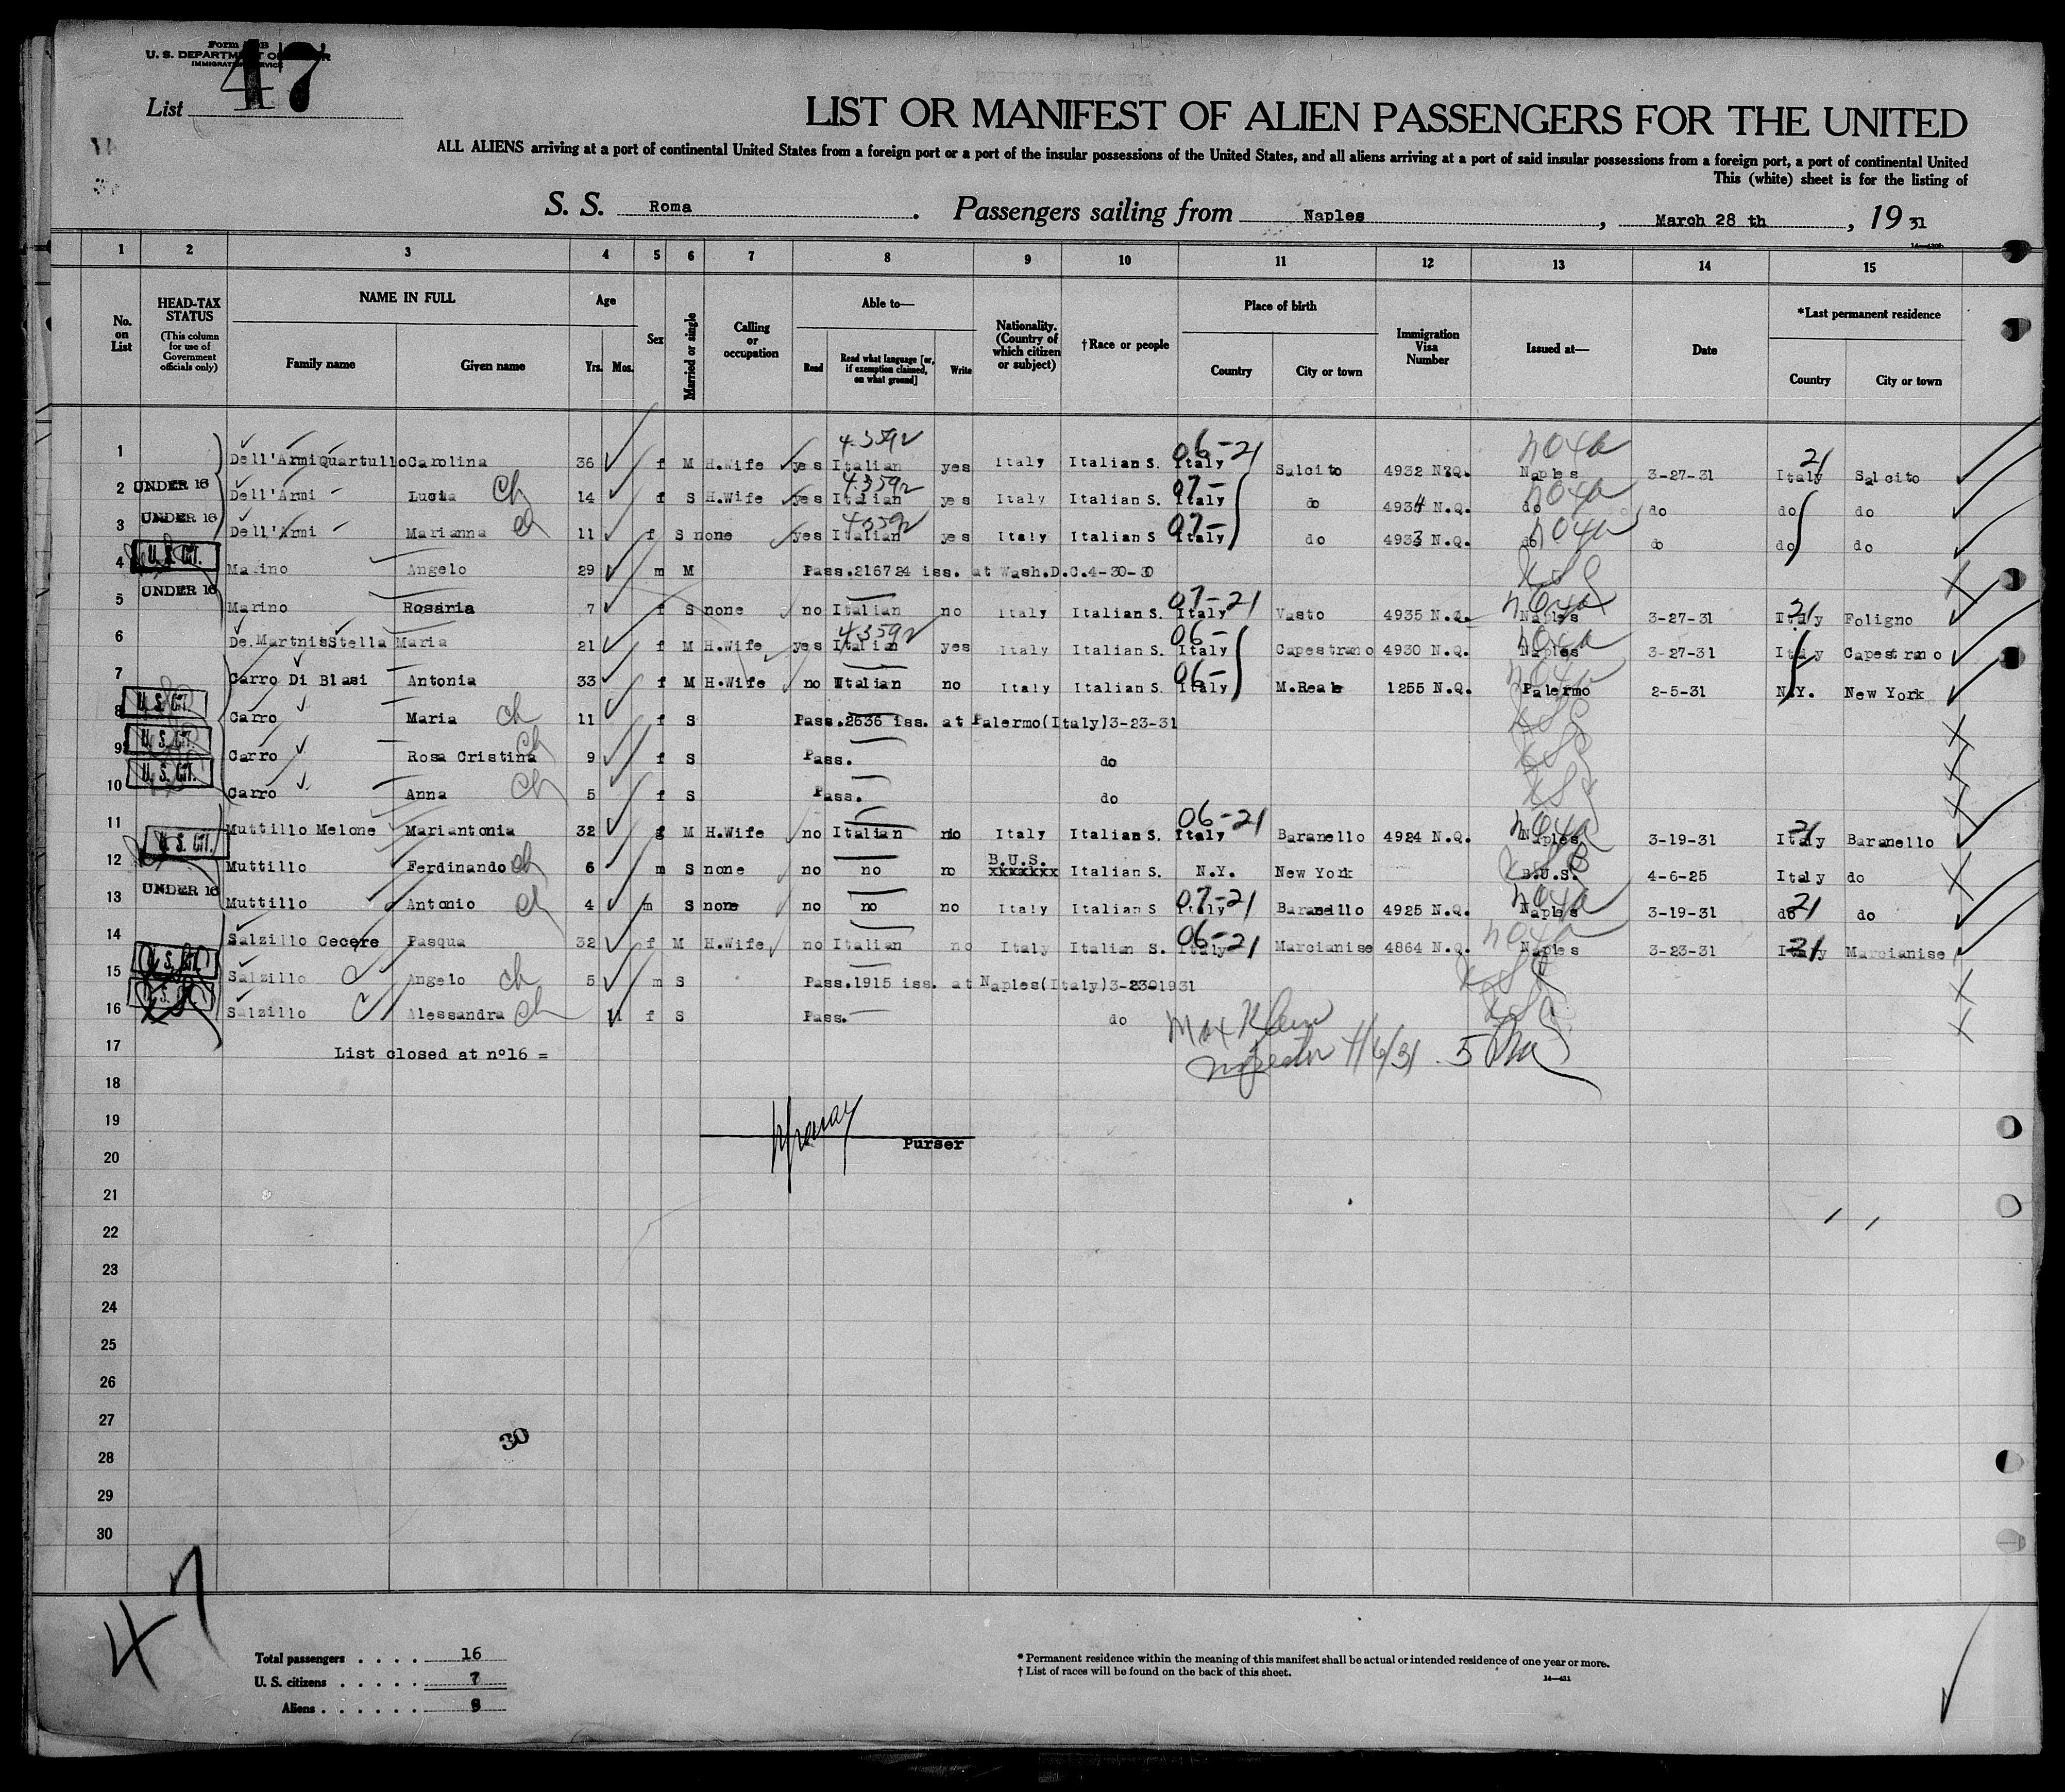 Form
U. S. DEPARTMENT OF
IMMIGRATION SERVICE
47
List
LIST OR MANIFEST OF ALIEN PASSENGERS FOR THE UNITED
ALL ALIENS arriving at a port of continental United States from a foreign port or a port of the insular possessions of the United States, and all aliens arriving at a port of said insular possessions from a foreign port, a port of continental United
This (white) sheet is for the listing of
S. S. Roma . Passengers sailing from Naples , March 28 th , 19 31
1 2 3 4 5 6 7 8 9 10 11 12 13 14 15
No. on List
HEAD-TAX STATUS
(This column for use of Government officials only)
NAME IN FULL
Family name Given name
Age
Yrs. Mos.
Sex
Married or single
Calling or occupation
Able to—
Read
Read what language [or, if exemption claimed, on what ground]
Write
Nationality. (Country of which citizen or subject)
†Race or people
Place of birth
Country City or town
Immigration Visa Number
Issued at—
Date
*Last permanent residence
Country City or town
1 Dell'Armi Quartullo Carolina 36 f M H.Wife yes Italian yes Italy Italian S. Italy 06-21 Salcito 4932 N.Q. Naples 3-27-31 Italy 21 Salcito
2 UNDER 16 Dell'Armi Lucia ch 14 f S H.Wife yes Italian yes Italy Italian S. Italy 07- do 4934 N.Q. do do do do
3 UNDER 16 Dell'Armi Marianna ch 11 f S none yes Italian yes Italy Italian S Italy 07- do 4933 N.Q. do do do do
4 U. S. CIT. Marino Angelo 29 m M Pass.216724 iss. at Wash.D.C.4-30-30
5 UNDER 16 Marino Rosaria 7 f S none no Italian no Italy Italian S. Italy 07-21 Vasto 4935 N.Q. Naples 3-27-31 Italy 21 Foligno
6 De.MartnisStella Maria 21 f M H.Wife yes Italian yes Italy Italian S. Italy 06- Capestrano 4930 N.Q. Naples 3-27-31 Italy Capestrano
7 Carro Di Blasi Antonia 33 f M H.Wife no Italian no Italy Italian S. Italy 06- M.Reale 1255 N.Q. Palermo 2-5-31 N.Y. New York
8 U. S. CIT. Carro Maria ch 11 f S Pass.2636 iss. at Palermo(Italy)3-23-31
9 U. S. CIT. Carro Rosa Cristina ch 9 f S Pass. do
10 U. S. CIT. Carro Anna ch 5 f S Pass. do
11 Muttillo Melone Mariantonia 32 f M H.Wife no Italian no Italy Italian S. Italy 06-21 Baranello 4924 N.Q. Naples 3-19-31 Italy 21 Baranello
12 U. S. CIT. Muttillo Ferdinando ch 6 m S none no no no B.U.S. xxxxxxx Italian S. N.Y. New York B.U.S. 4-6-25 Italy do
13 UNDER 16 Muttillo Antonio ch 4 m S none no no no Italy Italian S Italy 07-21 Baranello 4925 N.Q. Naples 3-19-31 do 21 do
14 Salzillo Cecere Pasqua 32 f M H.Wife no Italian no Italy Italian S. Italy 06-21 Marcianise 4864 N.Q. Naples 3-23-31 Italy 21 Marcianise
15 U. S. CIT. Salzillo Angelo ch 5 m S Pass.1915 iss. at Naples(Italy)3-23-1931
16 U. S. CIT. Salzillo Alessandra ch 11 f S Pass. do
Max Klein
17 List closed at nº16 =
Inspector 4/6/31
18
19
Purser
20
21
22
23
24
25
26
27
30
28
29
30
47
Total passengers . . . . 16
U. S. citizens . . . . . 7
Aliens . . . . . . 9
* Permanent residence within the meaning of this manifest shall be actual or intended residence of one year or more.
† List of races will be found on the back of this sheet.
14—421